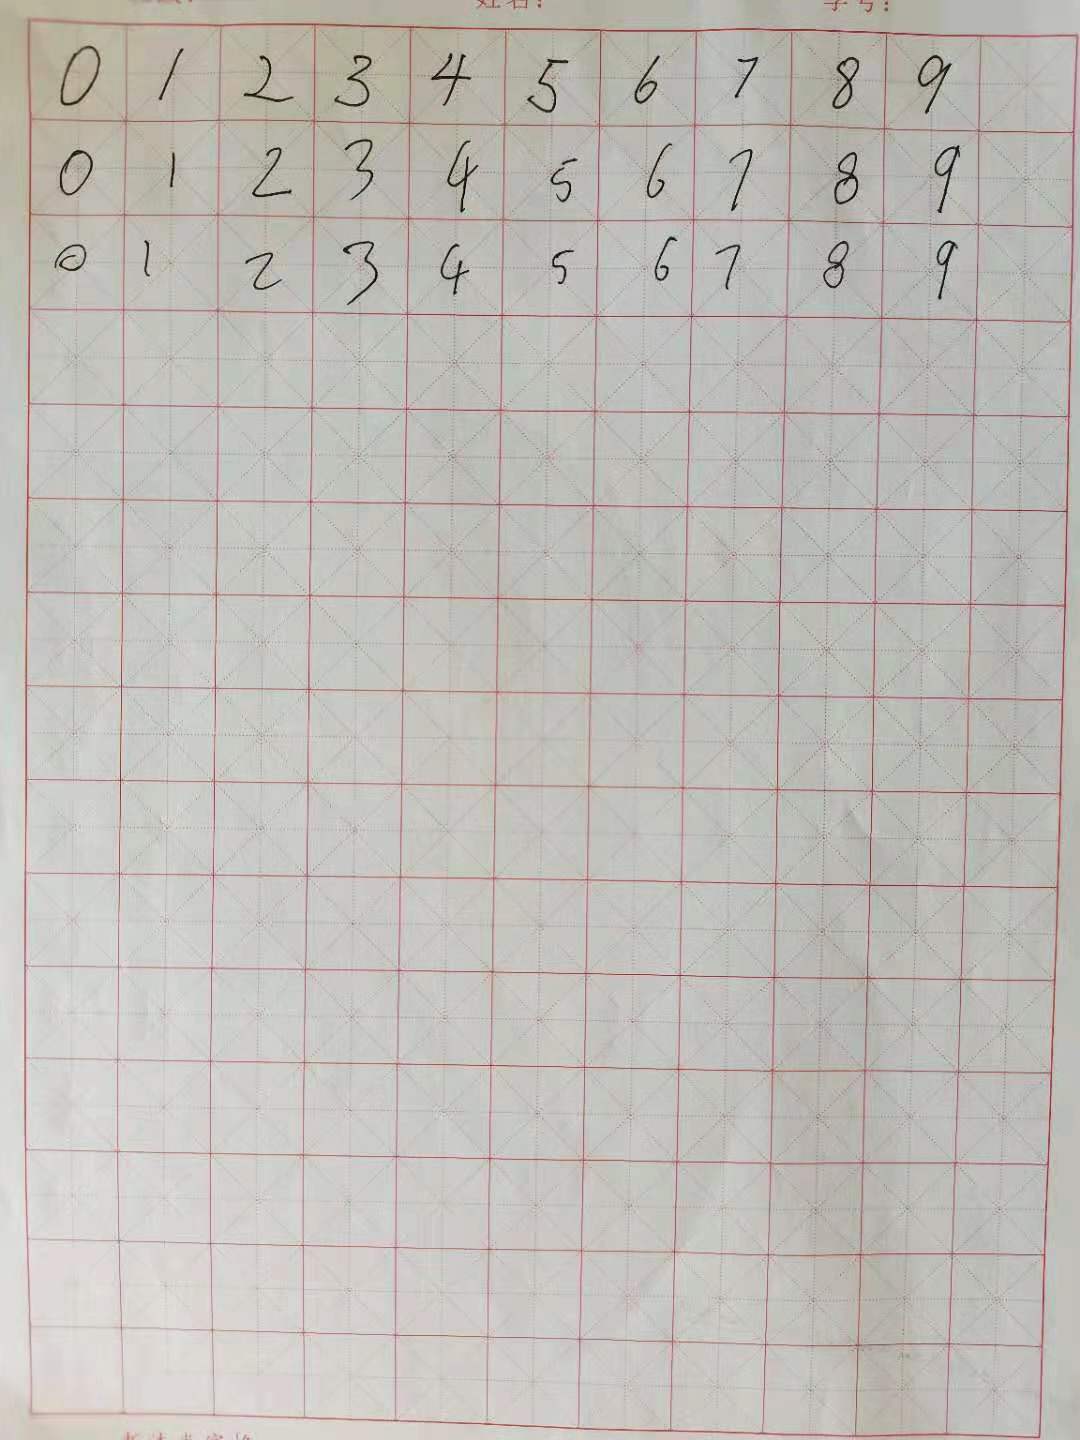 姓名: 学号:
0 1 2 3 4 5 6 7 8 9
0 1 2 3 4 5 6 7 8 9
0 1 2 3 4 5 6 7 8 9